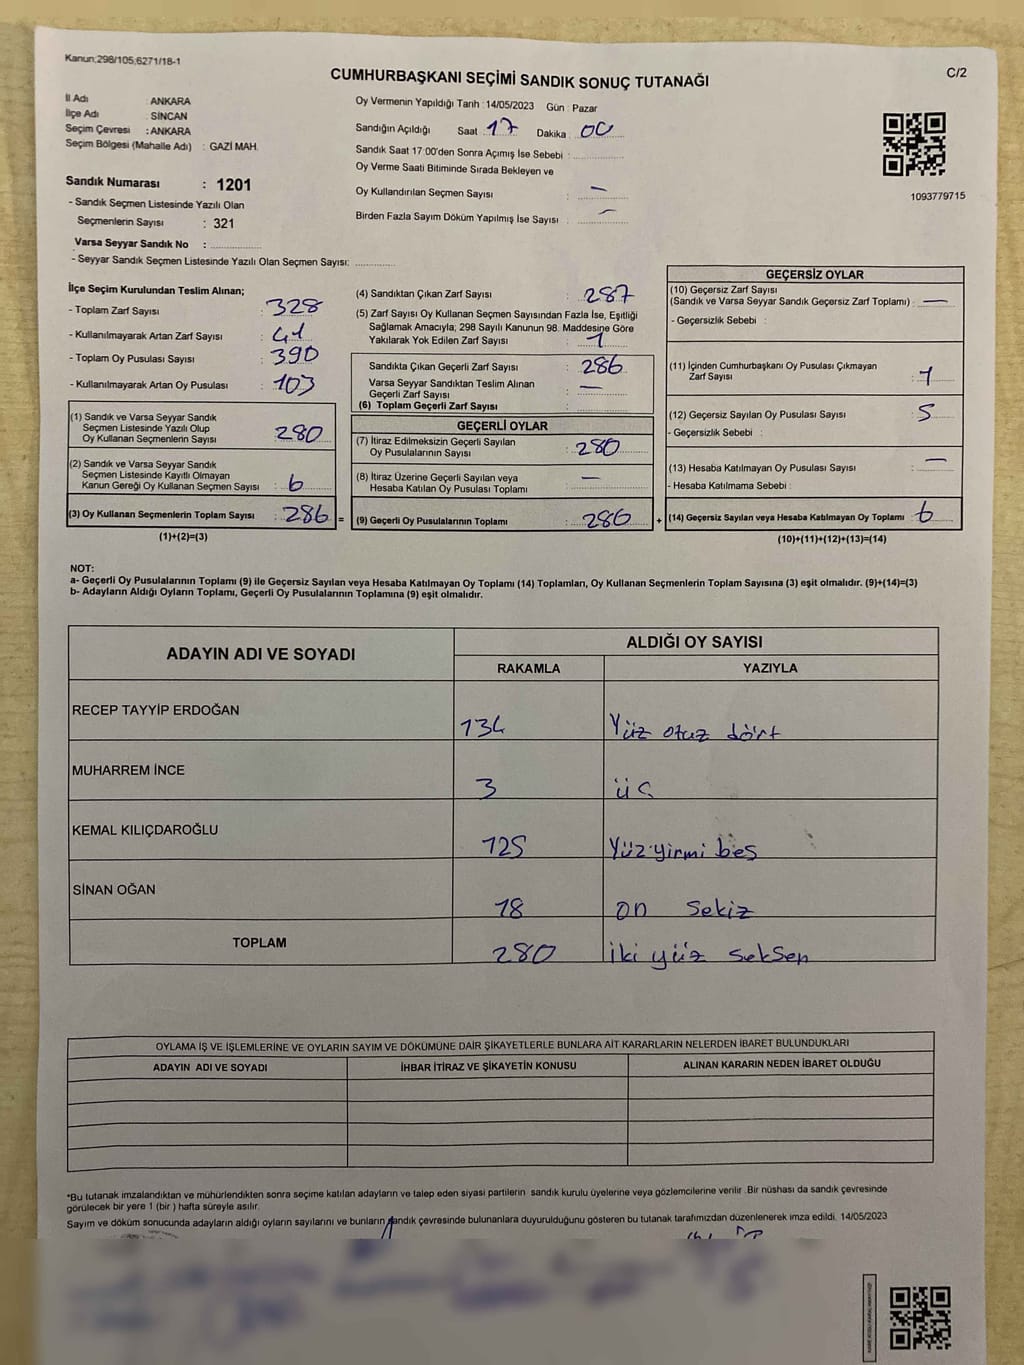 Kanun;298/105;6271/18-1
C/2
CUMHURBAŞKANI SEÇİMİ SANDIK SONUÇ TUTANAĞI
İl Adı : ANKARA
İlçe Adı : SİNCAN
Seçim Çevresi : ANKARA
Seçim Bölgesi (Mahalle Adı) : GAZİ MAH.
Sandık Numarası : 1201
- Sandık Seçmen Listesinde Yazılı Olan
Seçmenlerin Sayısı : 321
Varsa Seyyar Sandık No :
- Seyyar Sandık Seçmen Listesinde Yazılı Olan Seçmen Sayısı:
Oy Vermenin Yapıldığı Tarih : 14/05/2023 Gün : Pazar
Sandığın Açıldığı Saat 17 Dakika : 00
Sandık Saat 17:00'den Sonra Açımış İse Sebebi :
Oy Verme Saati Bitiminde Sırada Bekleyen ve
Oy Kullandırılan Seçmen Sayısı : —
Birden Fazla Sayım Döküm Yapılmış İse Sayısı : —
1093779715
İlçe Seçim Kurulundan Teslim Alınan;
- Toplam Zarf Sayısı : 328
- Kullanılmayarak Artan Zarf Sayısı : 41
- Toplam Oy Pusulası Sayısı : 390
- Kullanılmayarak Artan Oy Pusulası : 103
(1) Sandık ve Varsa Seyyar Sandık
Seçmen Listesinde Yazılı Olup
Oy Kullanan Seçmenlerin Sayısı : 280
(2) Sandık ve Varsa Seyyar Sandık
Seçmen Listesinde Kayıtlı Olmayan
Kanun Gereği Oy Kullanan Seçmen Sayısı : 6
(3) Oy Kullanan Seçmenlerin Toplam Sayısı : 286 =
(1)+(2)=(3)
(4) Sandıktan Çıkan Zarf Sayısı : 287
(5) Zarf Sayısı Oy Kullanan Seçmen Sayısından Fazla İse, Eşitliği
Sağlamak Amacıyla; 298 Sayılı Kanunun 98. Maddesine Göre
Yakılarak Yok Edilen Zarf Sayısı : 1
Sandıkta Çıkan Geçerli Zarf Sayısı : 286
Varsa Seyyar Sandıktan Teslim Alınan
Geçerli Zarf Sayısı : —
(6) Toplam Geçerli Zarf Sayısı :
GEÇERLİ OYLAR
(7) İtiraz Edilmeksizin Geçerli Sayılan
Oy Pusulalarının Sayısı : 280
(8) İtiraz Üzerine Geçerli Sayılan veya
Hesaba Katılan Oy Pusulası Toplamı : —
(9) Geçerli Oy Pusulalarının Toplamı : 280 +
GEÇERSİZ OYLAR
(10) Geçersiz Zarf Sayısı
(Sandık ve Varsa Seyyar Sandık Geçersiz Zarf Toplamı) : —
- Geçersizlik Sebebi :
(11) İçinden Cumhurbaşkanı Oy Pusulası Çıkmayan
Zarf Sayısı : 1
(12) Geçersiz Sayılan Oy Pusulası Sayısı : 5
- Geçersizlik Sebebi :
(13) Hesaba Katılmayan Oy Pusulası Sayısı : —
- Hesaba Katılmama Sebebi :
(14) Geçersiz Sayılan veya Hesaba Katılmayan Oy Toplamı : 6
(10)+(11)+(12)+(13)=(14)
NOT:
a- Geçerli Oy Pusulalarının Toplamı (9) ile Geçersiz Sayılan veya Hesaba Katılmayan Oy Toplamı (14) Toplamları, Oy Kullanan Seçmenlerin Toplam Sayısına (3) eşit olmalıdır. (9)+(14)=(3)
b- Adayların Aldığı Oyların Toplamı, Geçerli Oy Pusulalarının Toplamına (9) eşit olmalıdır.
ADAYIN ADI VE SOYADI ALDIĞI OY SAYISI
RAKAMLA YAZIYLA
RECEP TAYYİP ERDOĞAN 134 Yüz otuz dört
MUHARREM İNCE 3 üç
KEMAL KILIÇDAROĞLU 125 Yüz yirmi beş
SİNAN OĞAN 18 on sekiz
TOPLAM 280 İki yüz seksen
OYLAMA İŞ VE İŞLEMLERİNE VE OYLARIN SAYIM VE DÖKÜMÜNE DAİR ŞİKAYETLERLE BUNLARA AİT KARARLARIN NELERDEN İBARET BULUNDUKLARI
ADAYIN ADI VE SOYADI İHBAR İTİRAZ VE ŞİKAYETİN KONUSU ALINAN KARARIN NEDEN İBARET OLDUĞU
*Bu tutanak imzalandıktan ve mühürlendikten sonra seçime katılan adayların ve talep eden siyasi partilerin sandık kurulu üyelerine veya gözlemcilerine verilir. Bir nüshası da sandık çevresinde
görülecek bir yere 1 (bir ) hafta süreyle asılır.
Sayım ve döküm sonucunda adayların aldığı oyların sayılarını ve bunların sandık çevresinde bulunanlara duyurulduğunu gösteren bu tutanak tarafımızdan düzenlenerek imza edildi. 14/05/2023